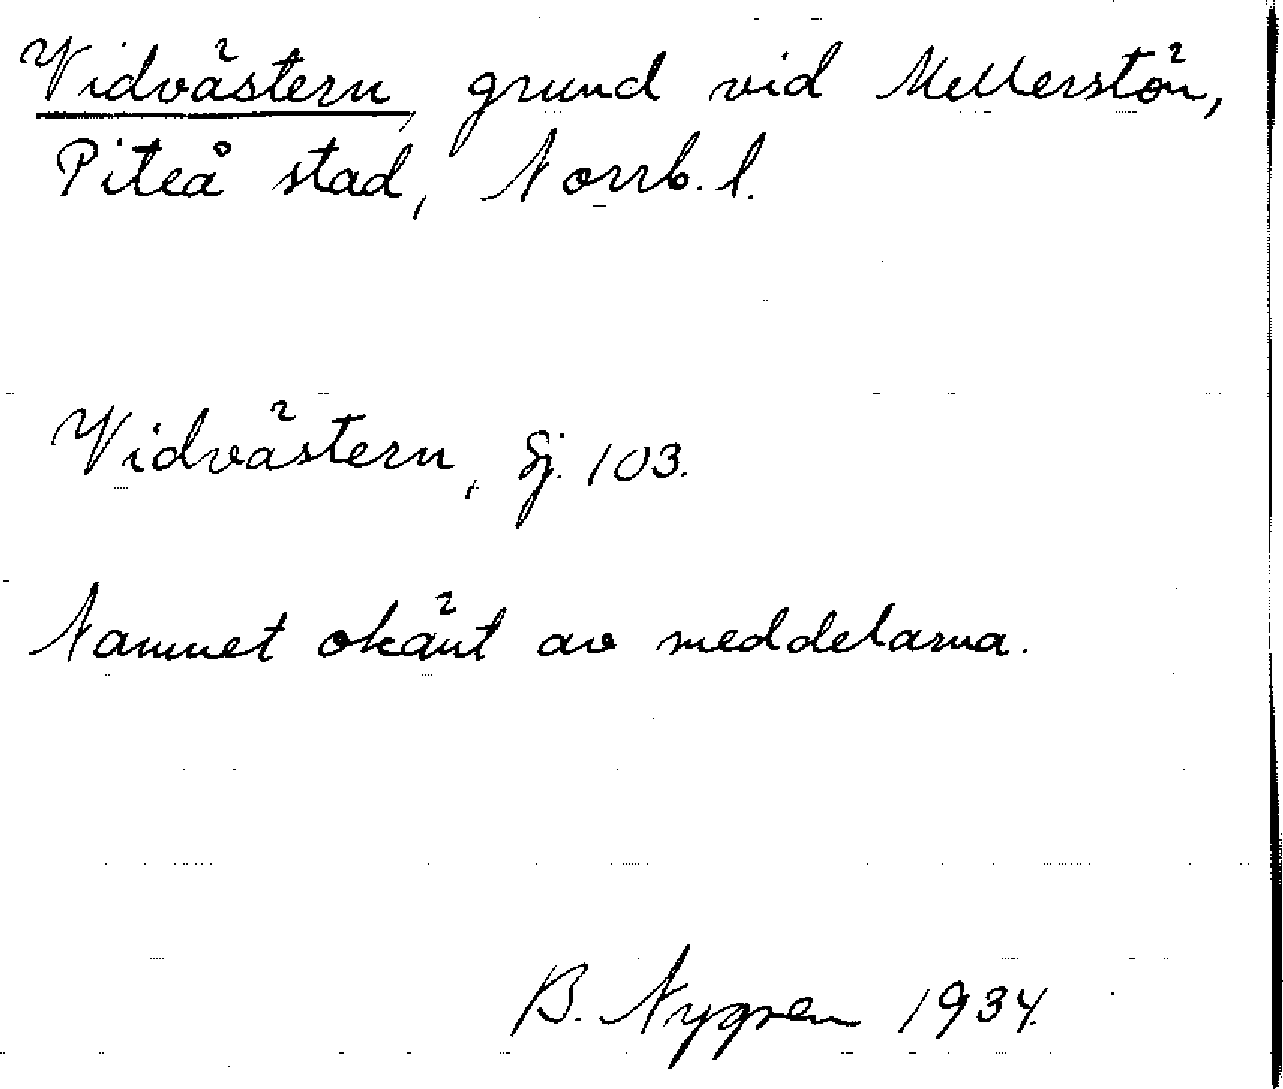 Vidvästern, grund vid Mellerstön,
Piteå stad, Norrb. l.
Vidvästern, Sj. 103.
Namnet okänt av meddelarna.
B. Nygren 1934.